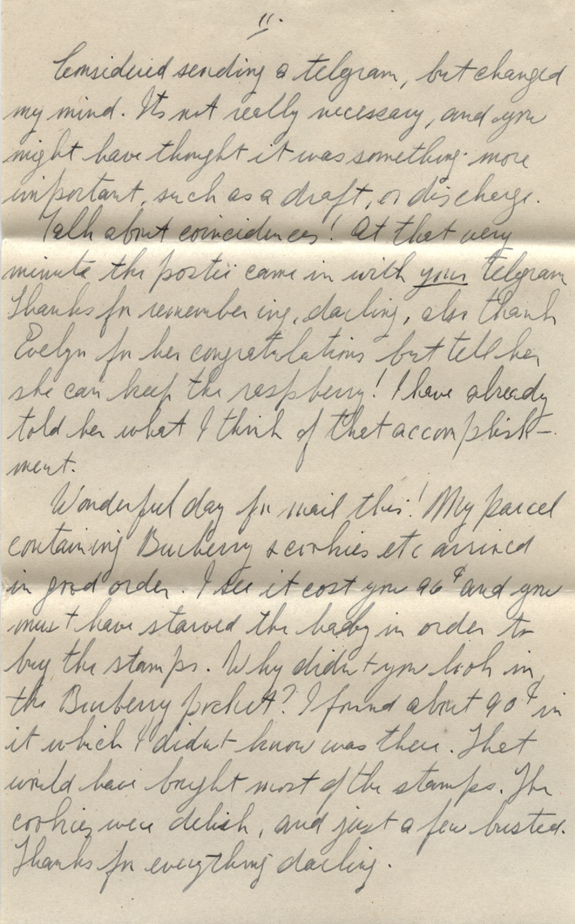 11.
Considered sending a telgram, but changed
my mind. Its not really necessary, and you
might have thought it was something more
important, such as a draft, or discharge.
Talk about coincidences! At that very
minute the postie came in with your telgram
Thanks for remembering, darling, also thank
Evelyn for her congratulations but tell her
she can keep the raspberry! I have already
told her what I think of that accomplish-
ment.
Wonderful day for mail this! My parcel
containing Burberry & cookies etc arrived
in good order. I see it cost you 96¢ and you
must have starved the baby in order to
buy the stamps. Why didn't you look in
the Burberry pocket? I found about 90¢ in
it which I didnt know was there. That
would have bought most of the stamps. The
cookies were delish, and just a few busted.
Thanks for everything darling.